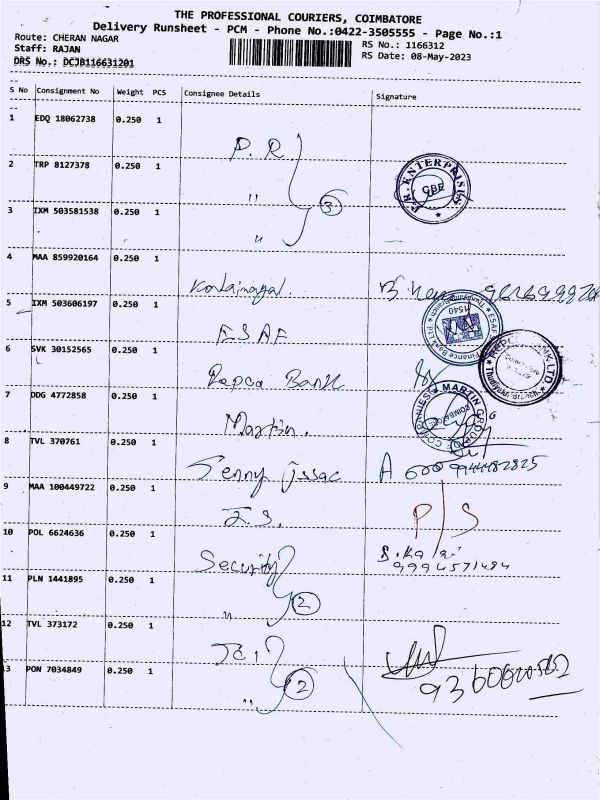 THE PROFESSIONAL COURIERS, COIMBATORE
Delivery Runsheet - PCM - Phone No.:0422-3505555 - Page No.:1
Route: CHERAN NAGAR
RS No.: 1166312
Staff: RAJAN
RS Date: 08-May-2023
DRS No.: DCJB116631201
S No Consignment No Weight PCS Consignee Details Signature
1 EDQ 18062738 0.250 1 P.R
2 TRP 8127378 0.250 1 " 3
P.R. ENTERPRISES
3 IXM 503581538 0.250 1 "
4 MAA 859920164 0.250 1
5 IXM 503606197 0.250 1 ESAF
6 SVK 30152565 0.250 1 Repco Bank
7 DDG 4772858 0.250 1 Martin.
COMPANIES MARTIN GROUP OF
8 TVL 370761 0.250 1 Jenny Jssac 9944482825
9 MAA 100449722 0.250 1 P/S
10 POL 6624636 0.250 1 Security 9994571484
11 PLN 1441895 0.250 1 " 2
12 TVL 373172 0.250 1
13 PON 7034849 0.250 1 " 2